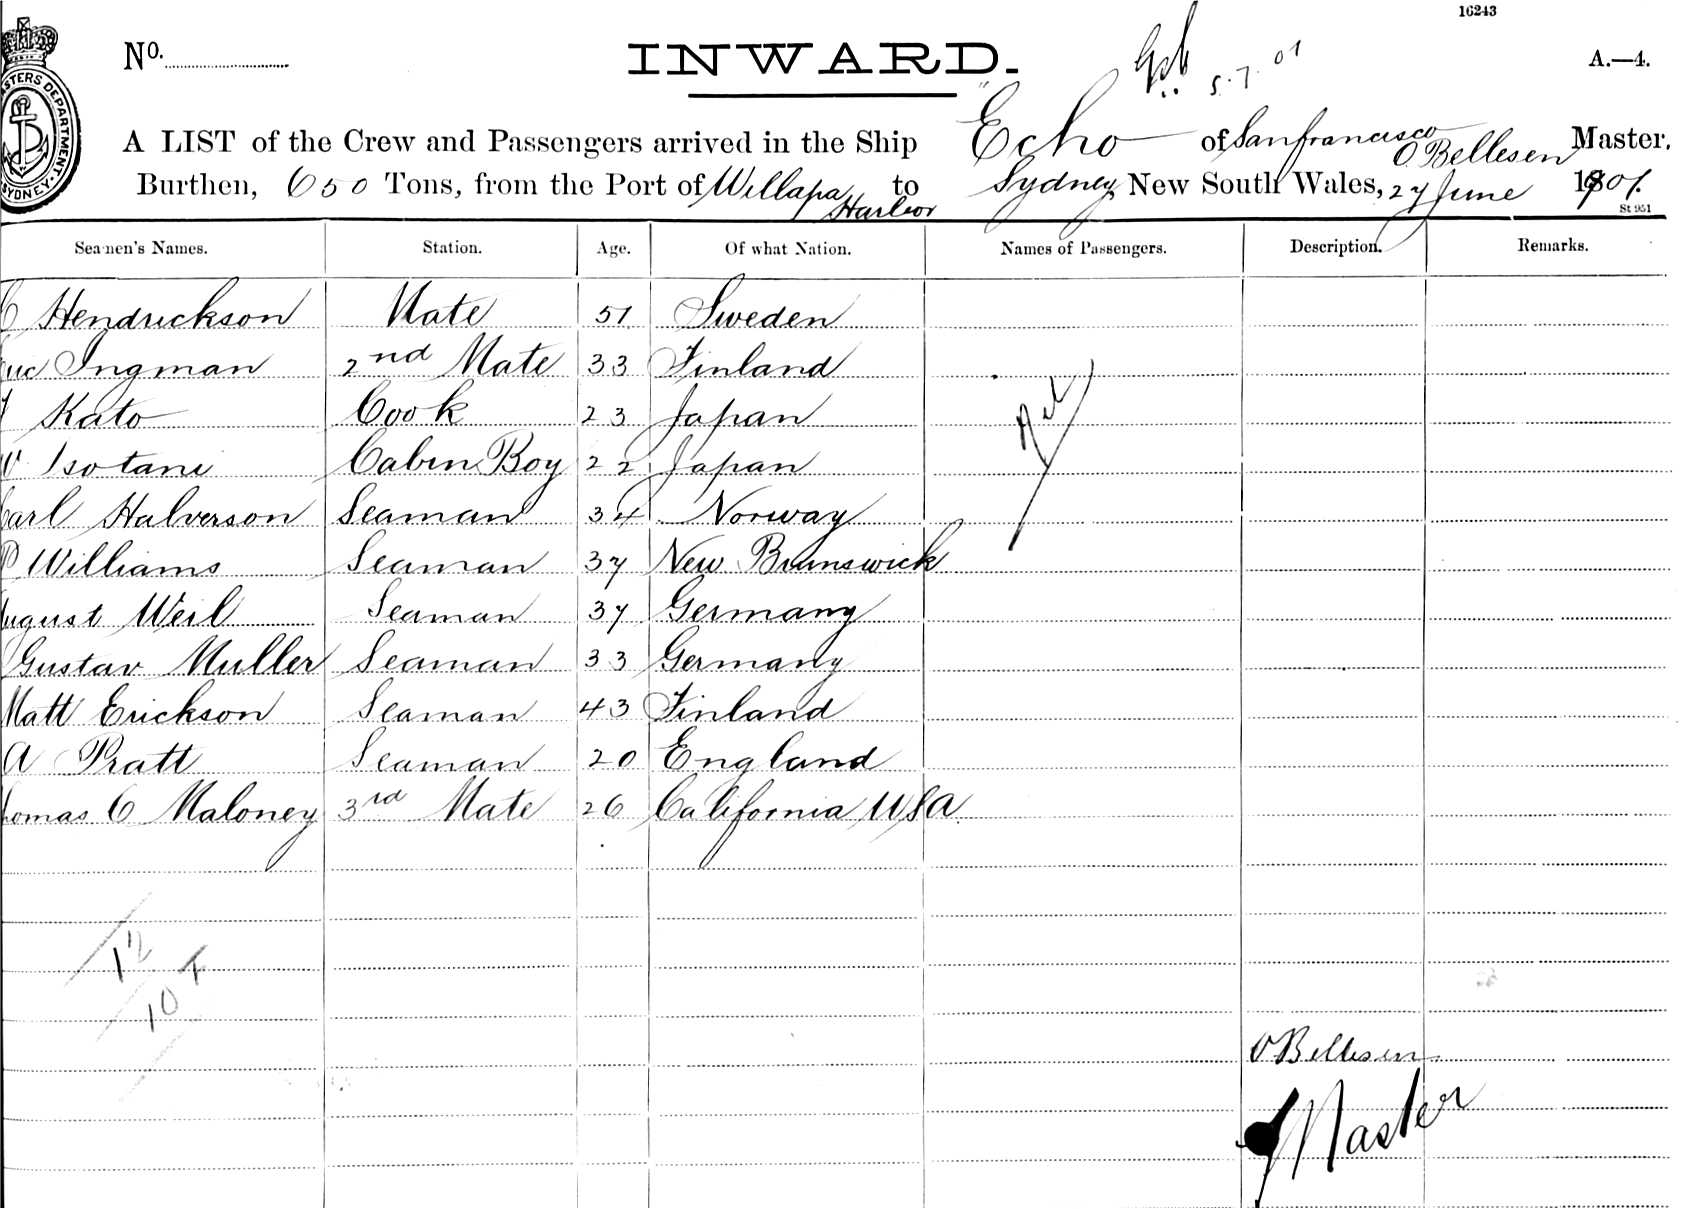 16243
No.
INWARD.
5.7.01
A.—4.
A LIST of the Crew and Passengers arrived in the Ship "Echo of San Francisco O. Bellesen Master,
Burthen, 650 Tons, from the Port of Willapa Harbor to Sydney New South Wales, 27 June 1901.
St 951
Seamen's Names. Station. Age. Of what Nation. Names of Passengers. Description. Remarks.
C Hendrickson Mate 51 Sweden
Eric Ingman 2nd Mate 33 Finland
Kato Cook 23 Japan
Isotani Cabin Boy 22 Japan
Carl Halverson Seaman 34 Norway
P Williams Seaman 37 New Brunswick
August Weil Seaman 37 Germany
Gustav Muller Seaman 33 Germany
Matt Erickson Seaman 43 Finland
A Pratt Seaman 20 England
Thomas C Maloney 3rd Mate 26 California USA
Nil
12
10
O Bellesen
Master